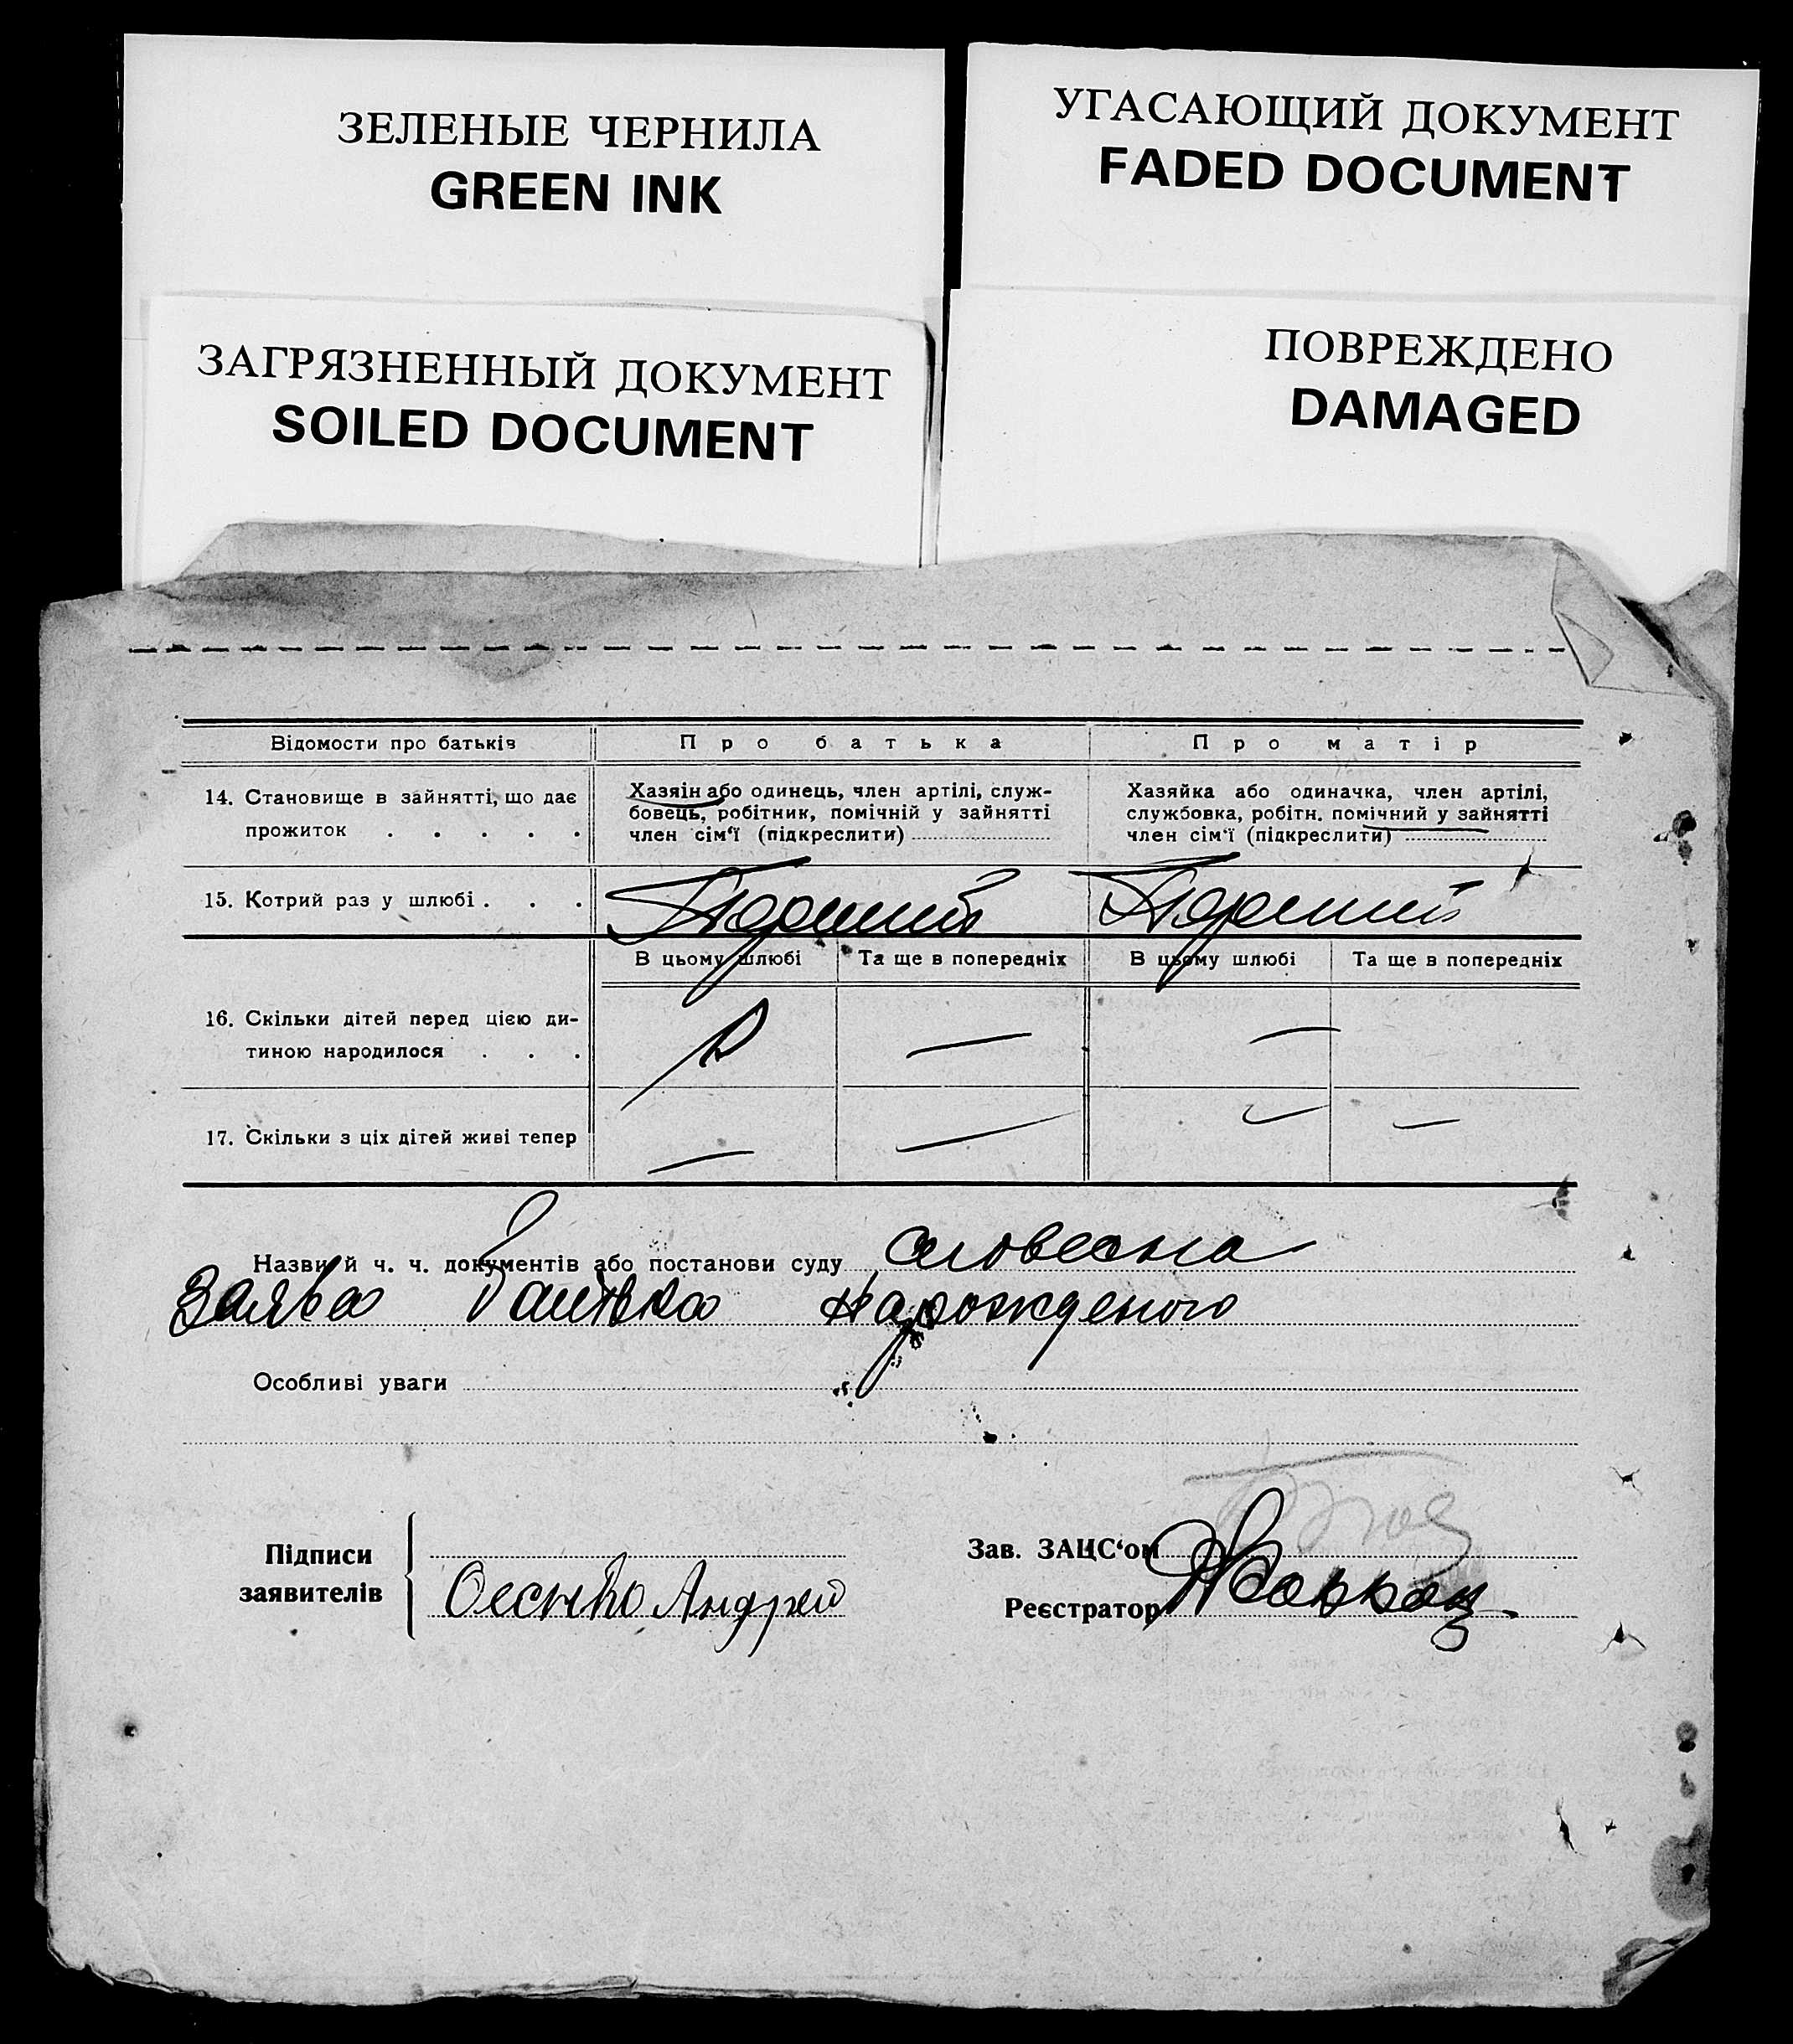 ЗЕЛЕНЫЕ ЧЕРНИЛА
GREEN INK
УГАСАЮЩИЙ ДОКУМЕНТ
FADED DOCUMENT
ЗАГРЯЗНЕННЫЙ ДОКУМЕНТ
SOILED DOCUMENT
ПОВРЕЖДЕНО
DAMAGED
Відомости про батьків
Про батька
Про матір
14. Становище в зайнятті, що дає
прожиток . . . . .
Хазяін або одинець, член артілі, служ-
бовець, робітник, помічній у зайнятті
член сім'ї (підкреслити)
Хазяйка або одиначка, член артілі,
службовка, робітн. помічний у зайнятті
член сім'ї (підкреслити)
15. Котрий раз у шлюбі . . .
Перший
Перший
В цьому шлюбі
Та ще в попередніх
В цьому шлюбі
Та ще в попередніх
16. Скільки дітей перед цією ди-
тиною народилося . . .
— —
17. Скільки з ціх дітей живі тепер
— — — —
Назви й ч. ч. документів або постанови суду словесна
Заява батька народженого
Особливі уваги
Підписи
заявителів
Андрей
Зав. ЗАЦС'ом
Реєстратор